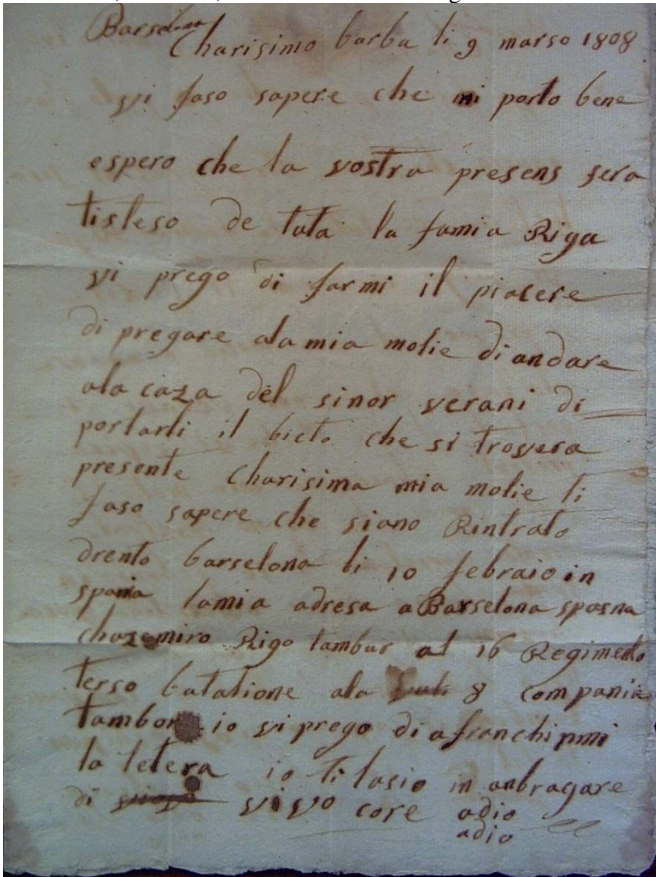 Barselona
Charisimo barba li 9 marso 1808
vi faso sapere che mi porto bene
espero che la vostra presens sera
tisteso de tuta la famia Riga
vi prego di farmi il piacere
di pregare ala mia molie di andare
ala caza del sinor verani di
portarli il bieto che si trovera
presente Charisima mia molie ti
faso sapere che siano Rintrato
drento barselona li 10 febraio in
spania lamia adresa a Barselona spasna
chazemiro Rigo tambur al 16 Regimento
terso batalione ala 8 compania
tambor io vi prego di afranchipmi
la letera io ti lasio in anbragare
di vivo core adio
adio